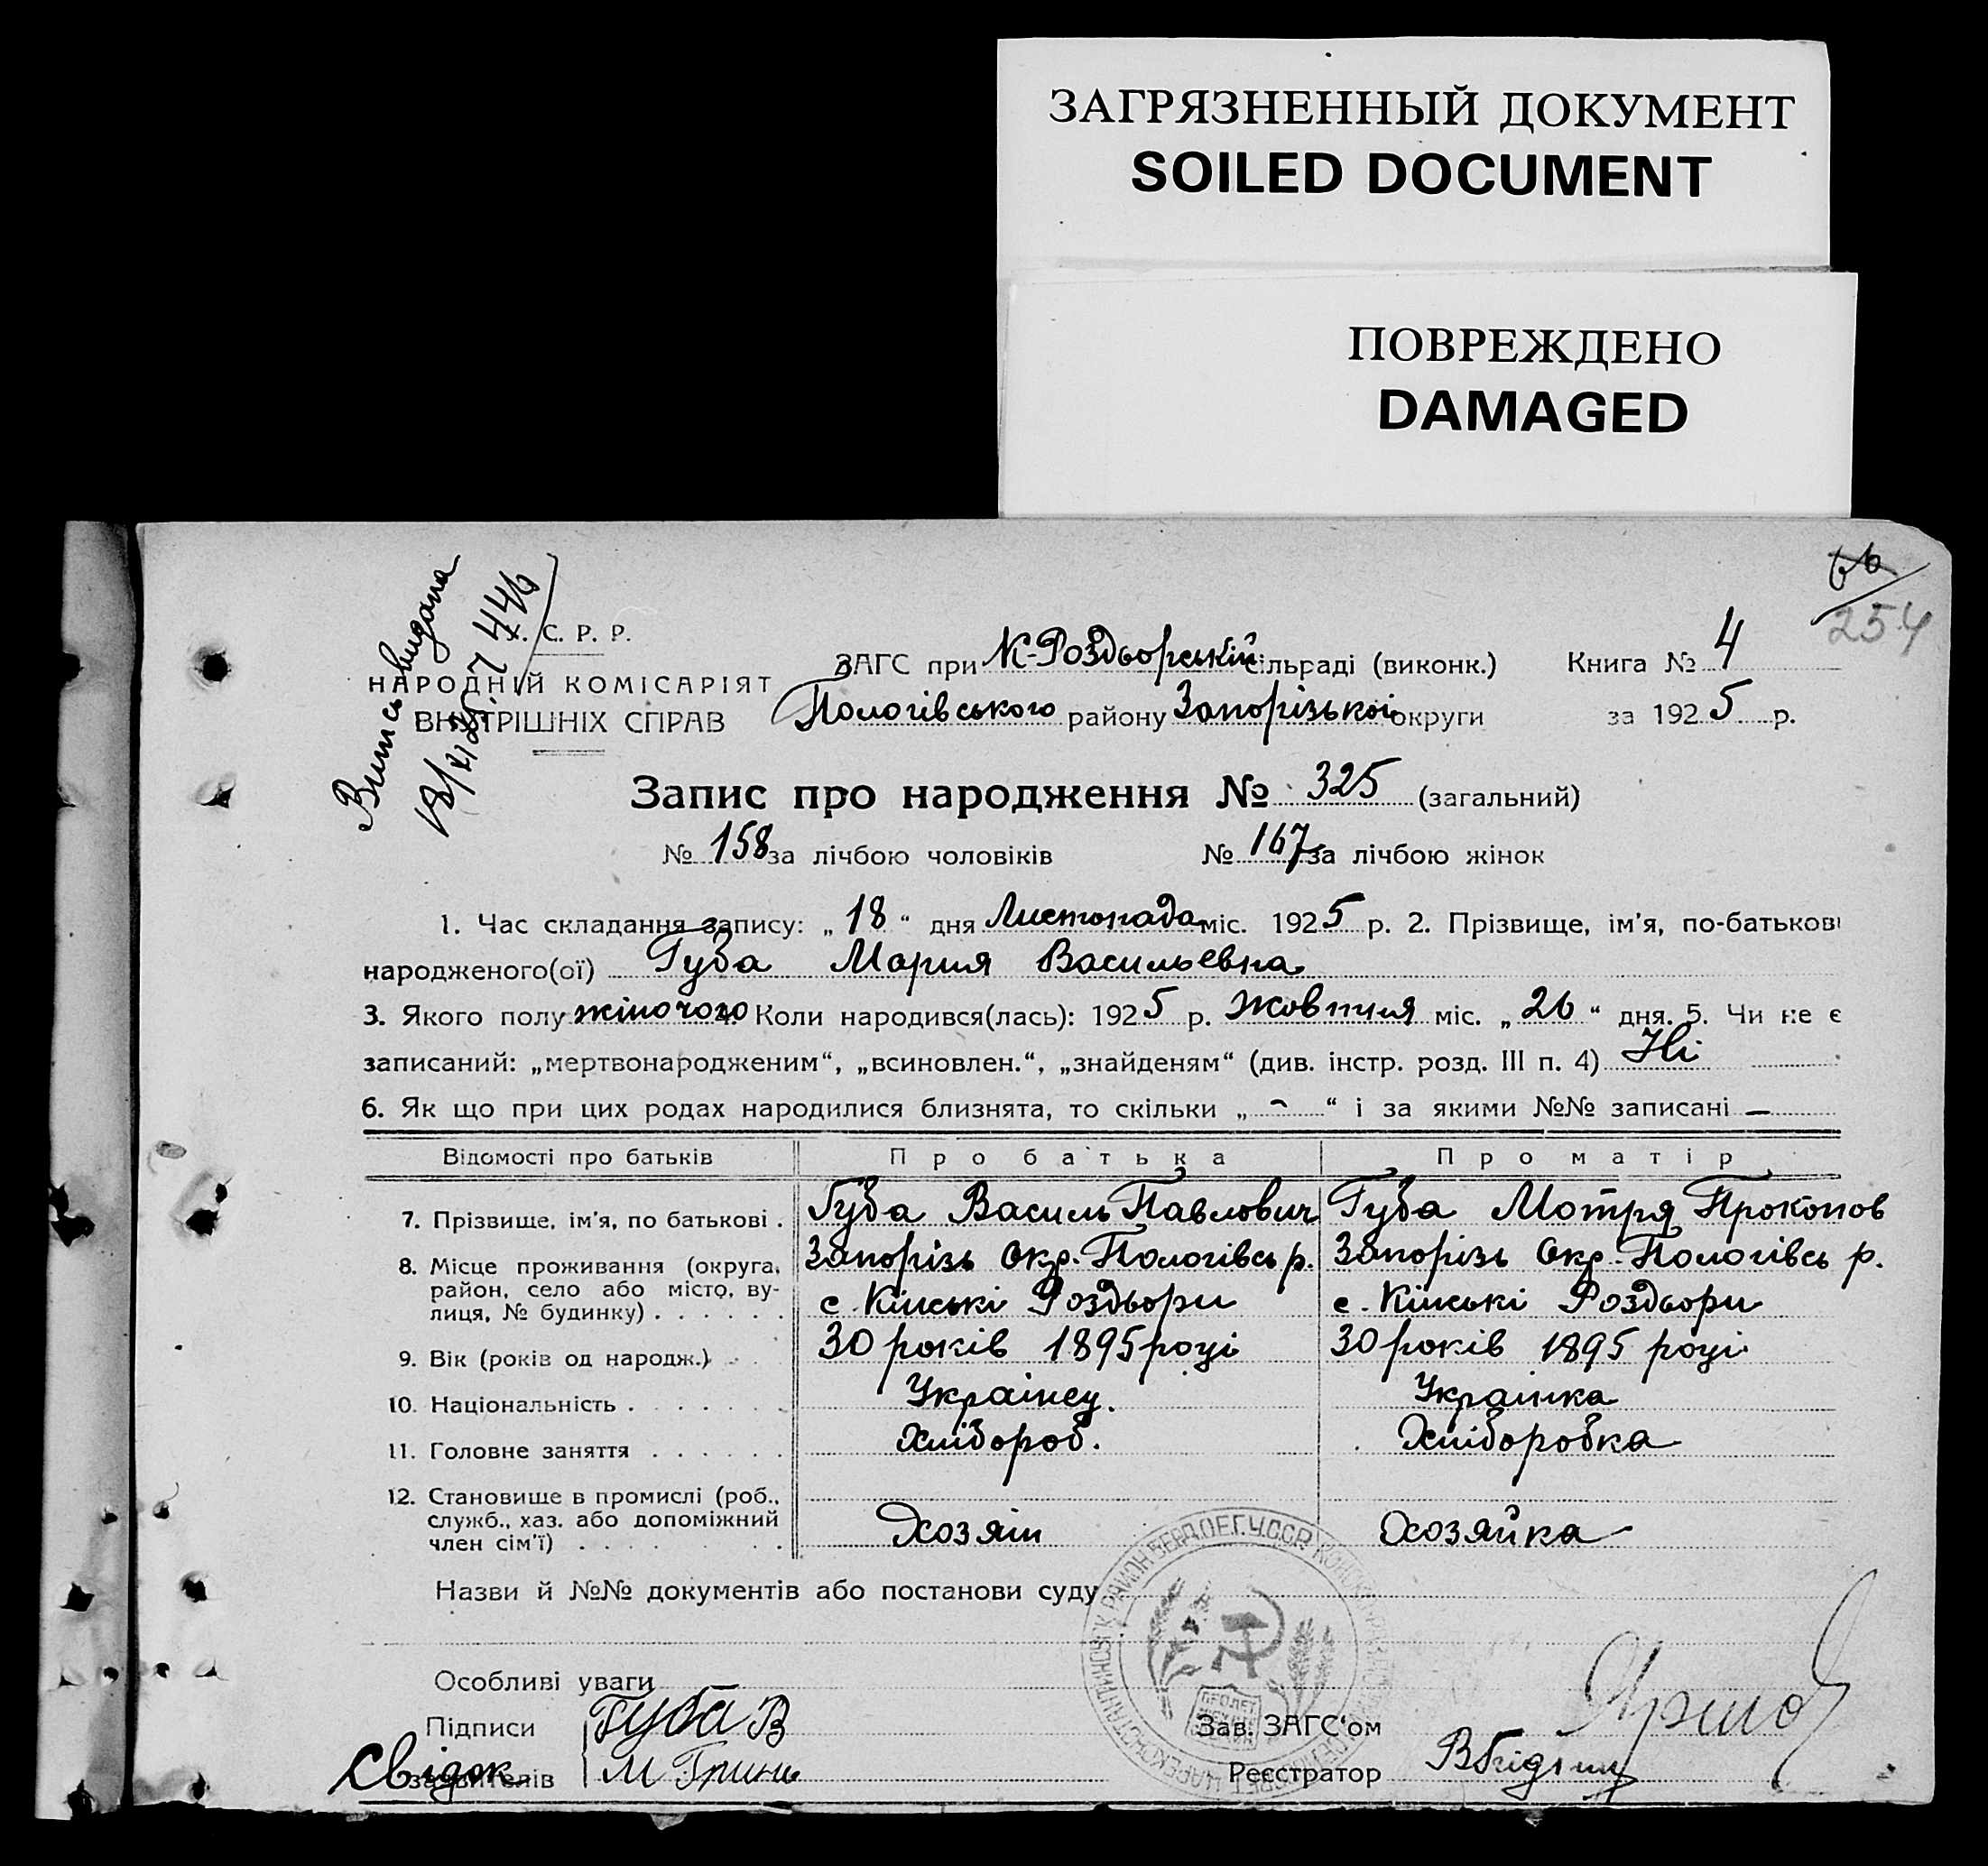 ЗАГРЯЗНЕННЫЙ ДОКУМЕНТ
SOILED DOCUMENT
ПОВРЕЖДЕНО
DAMAGED
66
254
Випись видана
18/XI 25. 7446
У. С. Р. Р.
НАРОДНІЙ КОМІСАРІЯТ
ВНУТРІШНІХ СПРАВ
ЗАГС при К-Роздьорській сільраді (виконк.) Книга № 4
Пологівського району Запорізької округи за 1925 р.
Запис про народження № 325 (загальний)
№ 158 за лічбою чоловіків № 167 за лічбою жінок
1. Час складання запису: „ 18 “ дня Листопада міс. 1925 р. 2. Прізвище, ім'я, по-батькові
народженого(ої) Губа Мария Васильевна
3. Якого полу жіночого 4. Коли народився(лась): 1925 р. Жовтня міс. „ 26 “ дня. 5. Чи не є
записаний: „мертвонародженим“, „всиновлен.“, „знайденям“ (див. інстр. розд. III п. 4) Ні
6. Як що при цих родах народилися близнята, то скільки „ - “ і за якими №№ записані —
Відомості про батьків Про батька Про матір
7. Прізвище, ім'я, по батькові . Губа Василь Павлович Губа Мотря Прокопов
8. Місце проживання (округа, Запорізь Окр. Пологівсь р. Запорізь Окр. Пологівсь р.
район, село або місто, ву-
лиця, № будинку) . . . . . . с. Кінські Роздьори с. Кінські Роздьори
9. Вік (років од народж.) . . 30 років 1895 році 30 років 1895 році
10. Національність . . . . . . . Українец. Українка
11. Головне заняття . . . . . . Хлібороб. Хліборобка
12. Становище в промислі (роб.,
служб., хаз. або допоміжний
член сім'ї) . . . . . . . . Хозяїн Хозяйка
Назви й №№ документів або постанови суду
Особливі уваги
Підписи Губа В Зав. ЗАГС'ом
Свідок
заявителів М Гринь Реєстратор